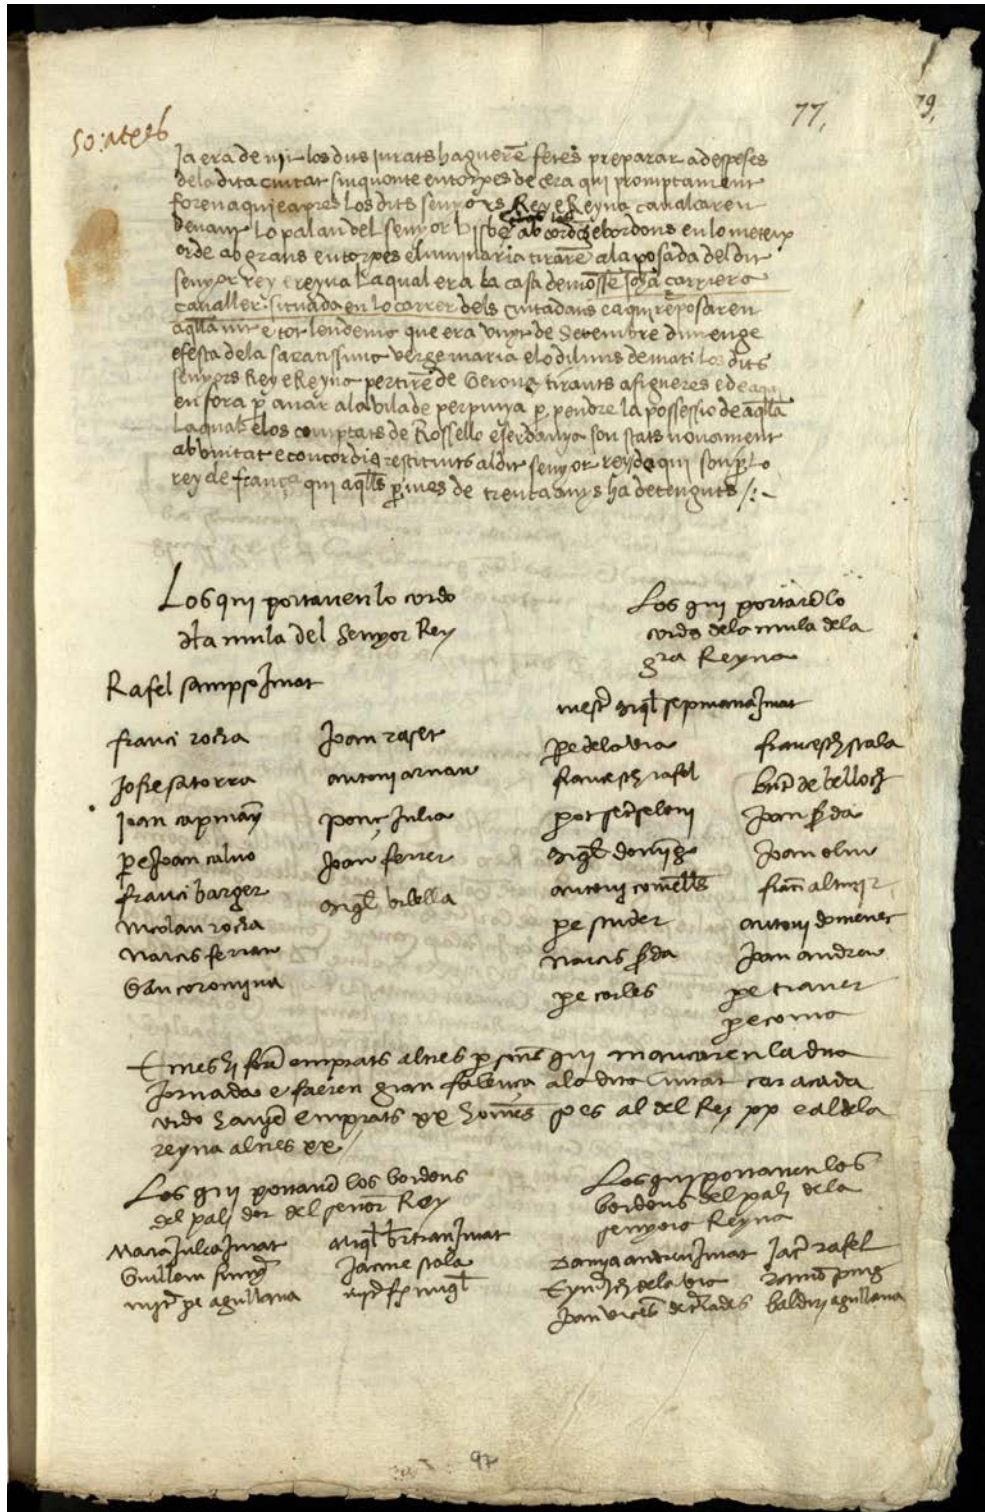 77,
79,
50: atxes
Ja era de nit los dits jurats haguerē fetes preparar a despeses
dela dita ciutat sinquonte entorxes de cera qui promptament
foren aqui e apres los dits senyors Rey e Reyna caualcaren
deuant lo palau del senyor bisbe ab cordōs e bordons en lo meteix
orde ab grans entorxes e luminaria tirarē a la posada del dit
senyor rey e reyna la qual era la casa de mossē Johā carriera
caualler situada en lo carrer dels Ciutadans e aqui reposaren
aqlla nit e tot lendema que era vuyt de Setembre diumenge
e festa dela sacratissima verge maria e lo diluns demati los dits
senyors Rey e Reyna pertirē de Gerona tirants a figueres e de aqui
en fora p anar ala vila de perpinya p pendre la possessio de aqlla
La qual e los comptats de Rossello e Serdanya son stats nouament
ab vnitat e concordia restituits al dit senyor rey de qui son p lo
rey de frança qui aqlls p mes de trenta anys ha detenguts /:~
Los qui portauen lo cordo
dela mula del Senyor Rey
Rafel sampso Jurat
franci rocha
Jofre satorra
Joan capmany
pe Joan caluo
franci barger
Nicolau rocha
Narcis ferrian
Glau coromina
Joan raset
antoni arnau
ponç Julia
Joan ferrer
Migl vilella
Los qui portarē lo
cordo dela mula dela
gra Reyna
mestr Migl sepmana Jurat
pe dela via
francesch rafel
Migl doming
antoni comells
pe studer
Narcis pda
pe corles
francesch scala
bnt de belloch
Joan pda
Joan oliu
franc altimir
antoni domenec
Joan andreu
pe trauer
pe coma
E mes hi forē emprats altres psones qui mancaren la dita
Jornada e faeren gran falença ala dita Ciutat car a cada
cordo hauiē emprats xx homēs ço es al del Rey xx e al dela
reyna altres xx
Los qui portauē los bordons
del pali dor del senor Rey
Maria Julia Jurat
Guillem
pe agullana
Migl bertran Jurat
Jacme scala
Los qui portauen los
bordons del pali dela
senyora Reyna
Damia andreu Jurat
dela via
Joan vicēs
Jac rafel
ramō puig
baldiri agullana
97